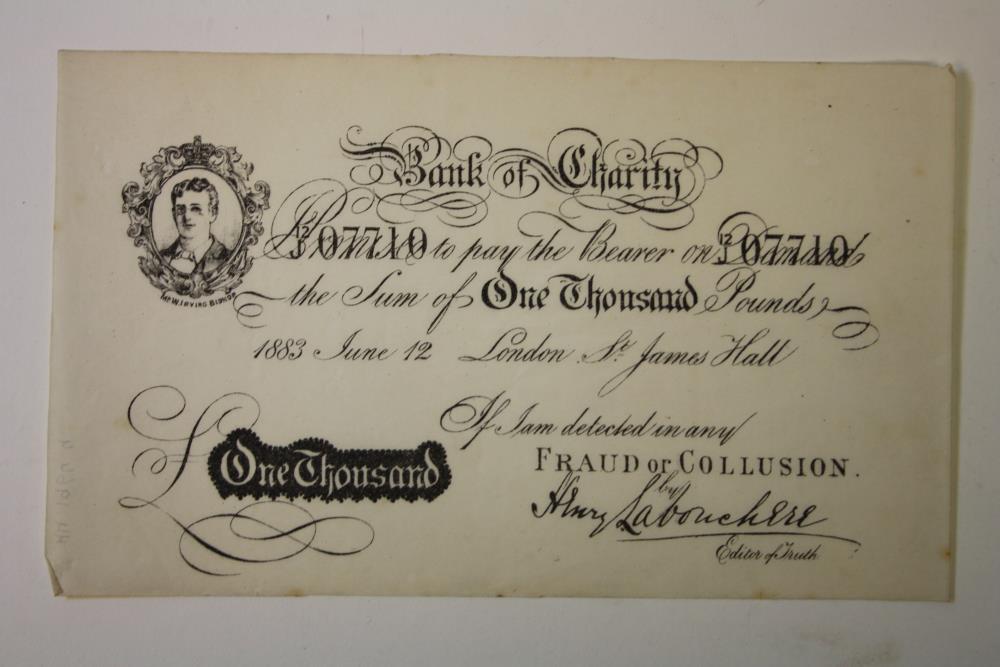 Bank of Charity
I Promise to pay the Bearer on Demand
12/J 07710 12/J 07710
the Sum of One Thousand Pounds
Mr W. IRVING BISHOP
1883 June 12 London St. James Hall
If I am detected in any
FRAUD or COLLUSION.
£ One Thousand
by
Henry Labouchere
Editor of Truth